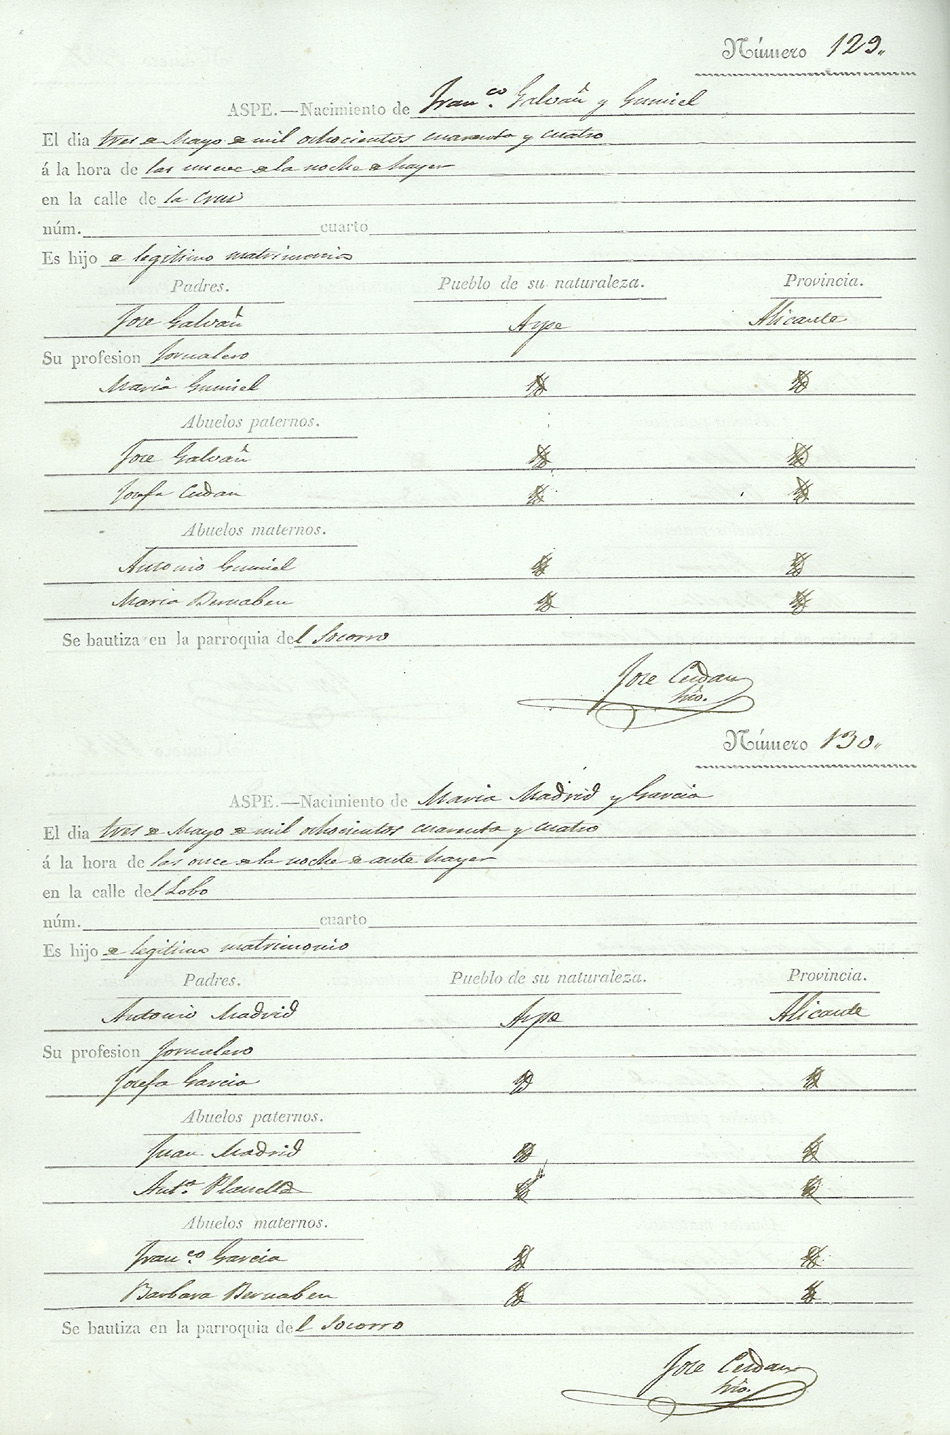 Número 129.
ASPE.—Nacimiento de Fran.co Galvañ y Gumiel
El dia tres de Mayo de mil ochocientos cuarenta y cuatro
á la hora de las nueve de la noche de hayer
en la calle de la Cruz
núm. cuarto
Es hijo de legitimo matrimonio
Padres. Pueblo de su naturaleza. Provincia.
Jose Galvañ Aspe Alicante
Su profesion Jornalero
Maria Gumiel
Abuelos paternos.
Jose Galvañ
Josefa Cerdan
Abuelos maternos.
Antonio Gumiel
Maria Bernabeu
Se bautiza en la parroquia del Socorro
Jose Cerdan
Srio.
Número 130.
ASPE.—Nacimiento de Maria Madrid y Garcia
El dia tres de Mayo de mil ochocientos cuarenta y cuatro
á la hora de las once de la noche de ante hayer
en la calle del Lobo
núm. cuarto
Es hijo de legitimo matrimonio
Padres. Pueblo de su naturaleza. Provincia.
Antonio Madrid Aspe Alicante
Su profesion Jornalero
Josefa Garcia
Abuelos paternos.
Juan Madrid
Ant.a Planelles
Abuelos maternos.
Fran.co Garcia
Barbara Bernabeu
Se bautiza en la parroquia del Socorro
Jose Cerdan
Srio.